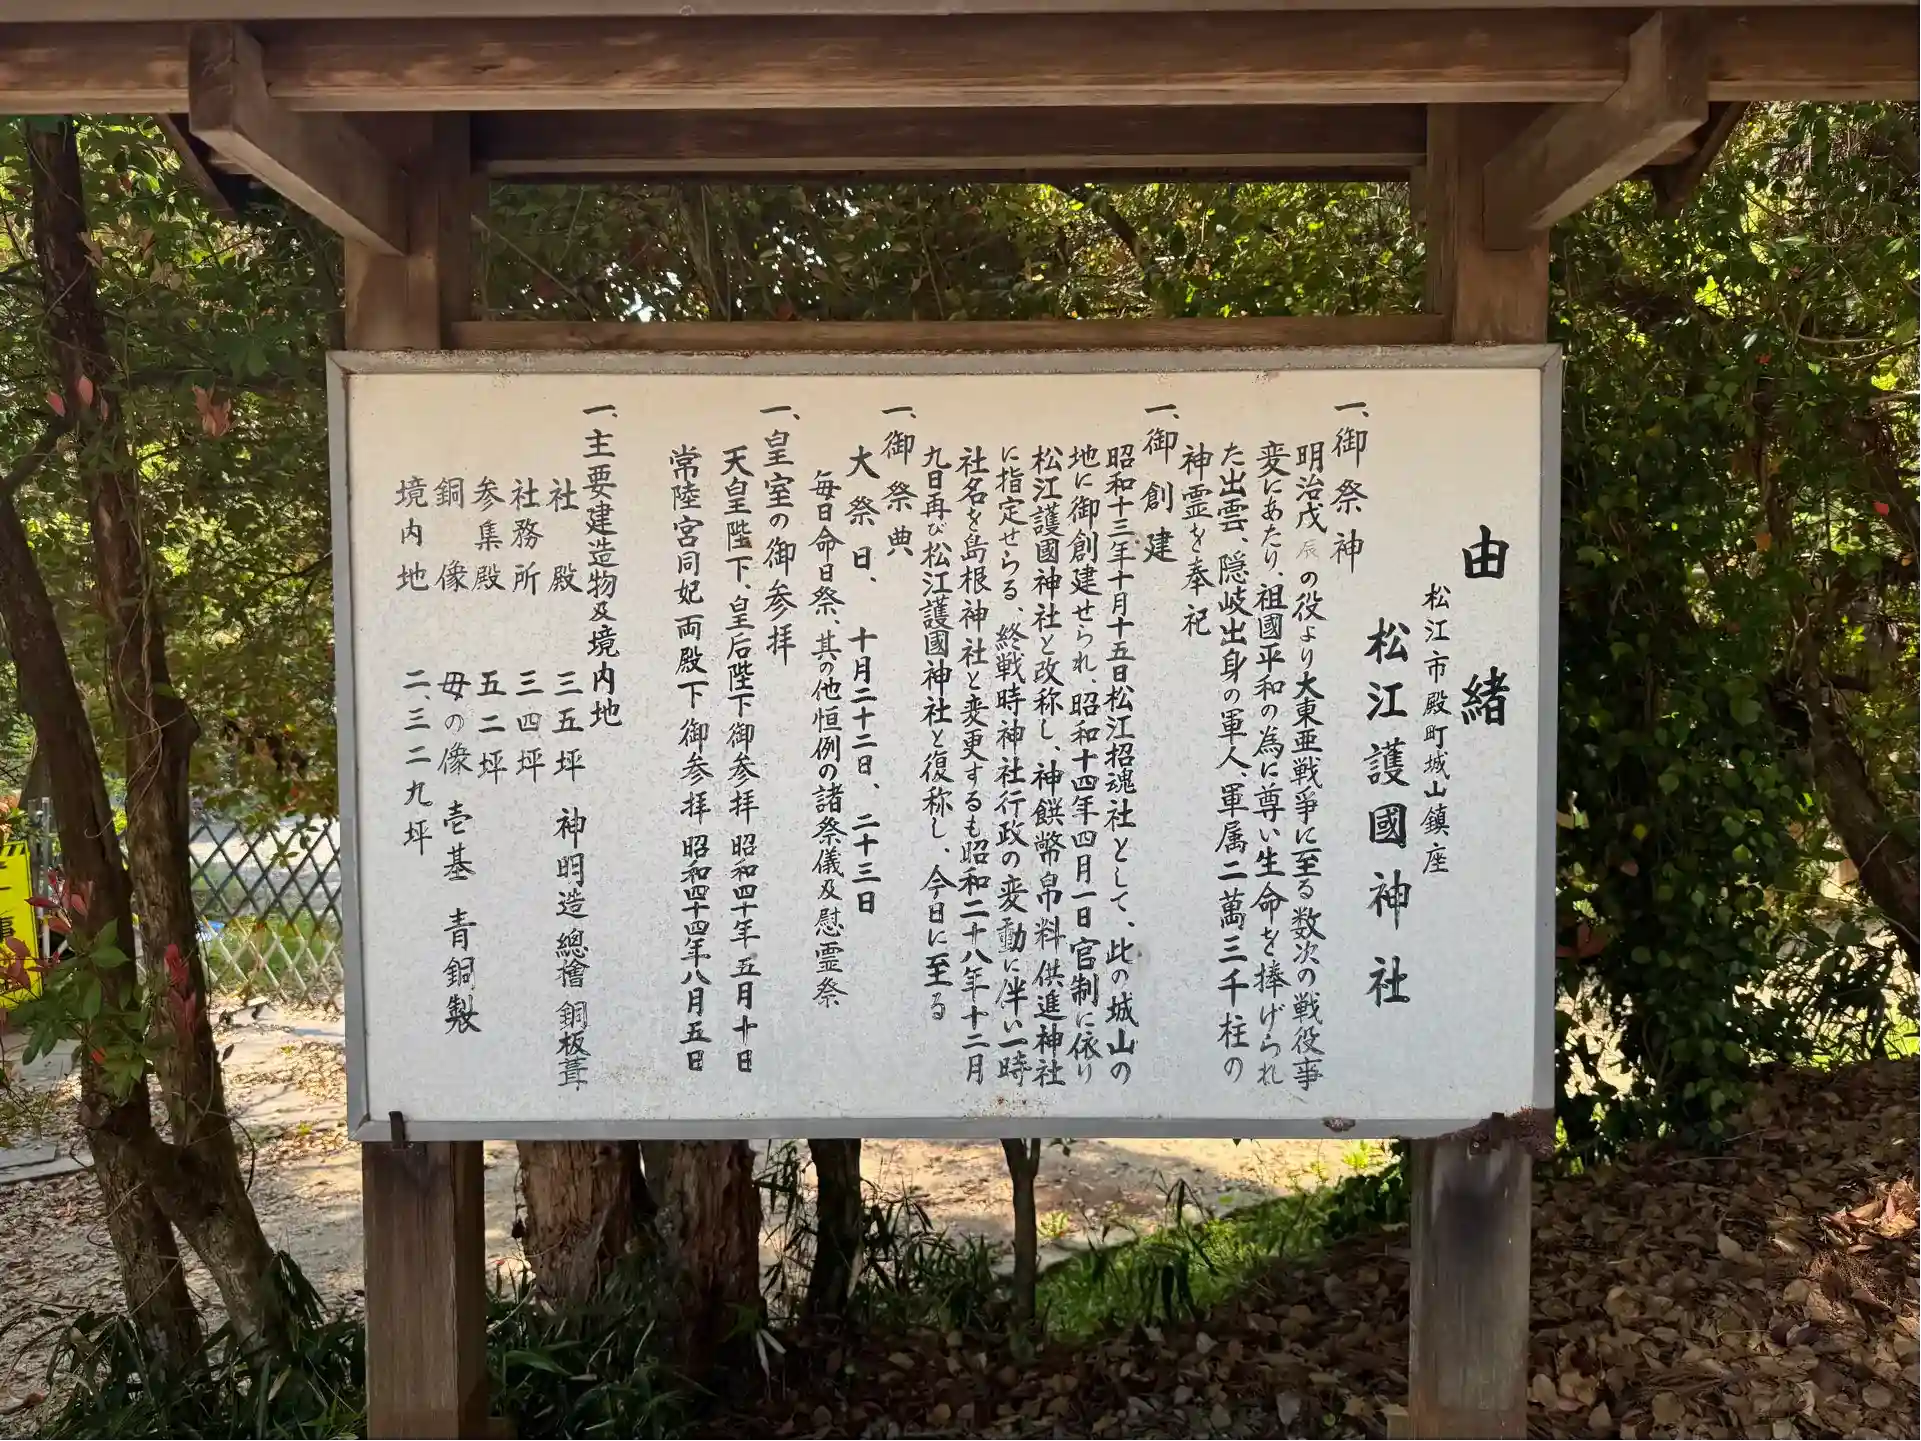 由緒
松江市殿町城山鎮座
松江護國神社
一、御祭神
明治戊辰の役より大東亜戦争に至る数次の戦役事
変にあたり、祖國平和の為に尊い生命を捧げられ
た出雲、隠岐出身の軍人、軍属二萬三千柱の
神霊を奉祀
一、御創建
昭和十三年十月十五日松江招魂社として、此の城山の
地に御創建せられ、昭和十四年四月一日官制に依り
松江護國神社と改称し、神饌幣帛料供進神社
に指定せらる、終戦時神社行政の変動に伴い一時
社名を島根神社と変更するも昭和二十八年十二月
九日再び松江護國神社と復称し、今日に至る
一、御祭典
大祭日、十月二十二日、二十三日
毎日命日祭、其の他恒例の諸祭儀及慰霊祭
一、皇室の御参拝
天皇陛下、皇后陛下御参拝 昭和四十年五月十日
常陸宮同妃両殿下御参拝 昭和四十四年八月五日
一、主要建造物及境内地
社殿 三五坪 神明造總檜銅板葺
社務所 三四坪
参集殿 五二坪
銅像 母の像 壱基 青銅製
境内地 二、三二九坪